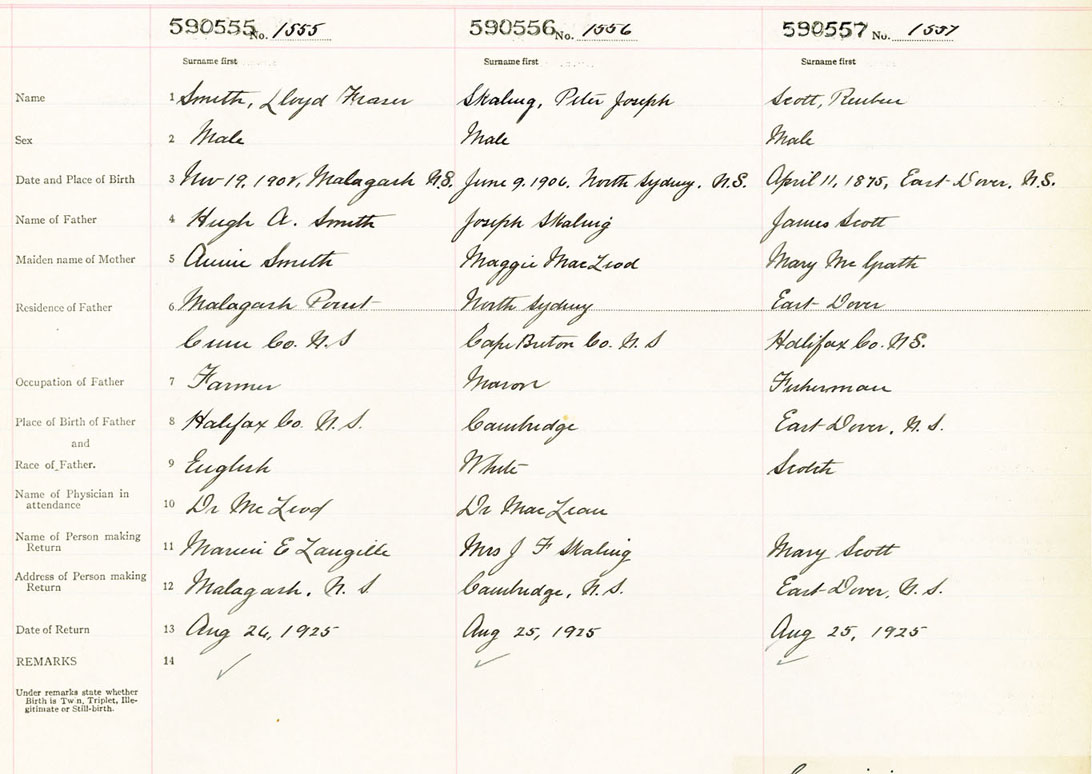 590555 No. 1555 590556 No. 1556 590557 No. 1557
Surname first Surname first Surname first
Name 1 Smith, Lloyd Fraser Skaling, Peter Joseph Scott, Reuben
Sex 2 Male Male Male
Date and Place of Birth 3 Nov 19, 1908, Malagash N.S. June 9, 1906, North Sydney, N.S. April 11, 1875, East Dover, N.S.
Name of Father 4 Hugh A. Smith Joseph Skaling James Scott
Maiden name of Mother 5 Annie Smith Maggie MacLeod Mary McGrath
Residence of Father 6 Malagash Point North Sydney East Dover
Co. N.S Cape Breton Co. N.S Halifax Co. N.S.
Occupation of Father 7 Farmer Mason Fisherman
Place of Birth of Father 8 Halifax Co. N.S. Cambridge East Dover, N.S.
and
Race of Father. 9 English White Scotch
Name of Physician in
attendance 10 Dr McLeod Dr MacLean
Name of Person making
Return 11 E Langille Mrs J F Skaling Mary Scott
Address of Person making
Return 12 Malagash, N.S. Cambridge, N.S. East Dover, N.S.
Date of Return 13 Aug 26, 1925 Aug 25, 1925 Aug 25, 1925
REMARKS 14
Under remarks state whether
Birth is Twin, Triplet, Ille-
gitimate or Still-birth.